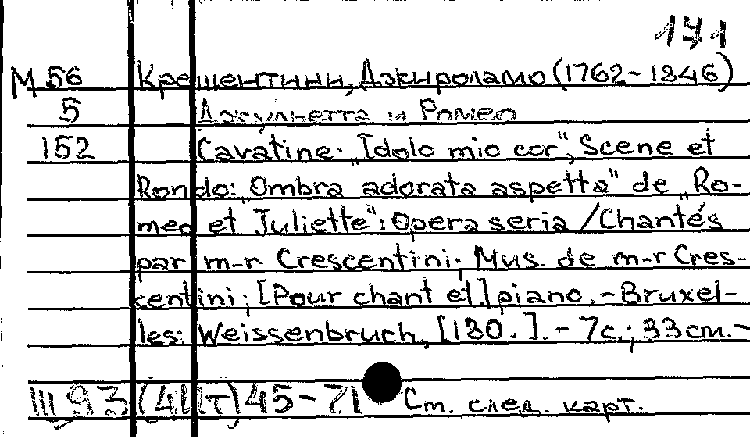 171
М 56 Крешентини, Джыроламо (1762-1846)
5 Джульетта и Ромео
152 Cavatine: "Idolo mio cor", Scene et
Rondo: "Ombra adorata aspetta" de "Ro-
meo et Juliette": Opera seria / Chantés
par m-r Crescentini; Mus. de m-r Cres-
centini; [Pour chant et] piano. - Bruxel-
les: Weissenbruch, [180.]. - 7с.; 33 см. -
III 93 (4Шт) 45-71 См. след. карт.